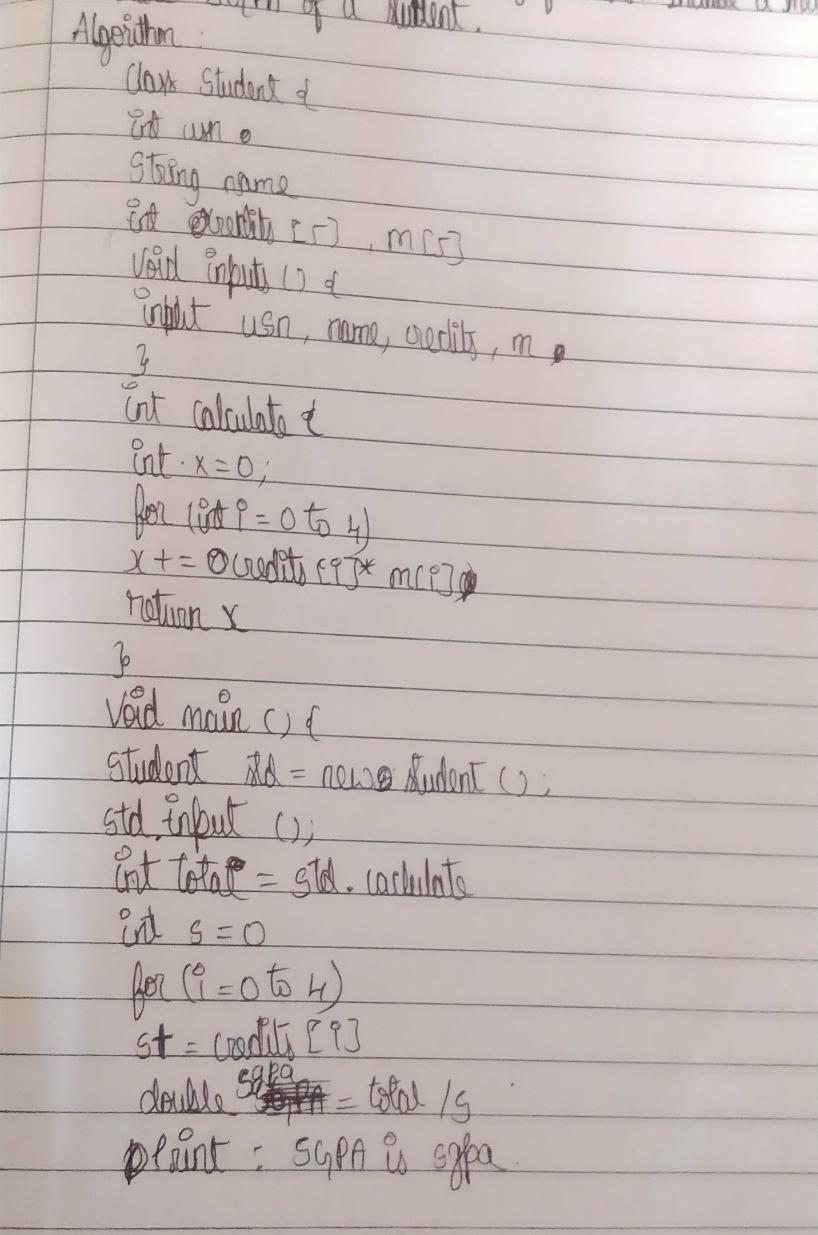 of a student.
Algorithm :
Class Student {
int usn
String name
int credits [5], m[5]
void inputs () {
input usn, name, credits, m
}
int calculate {
int x=0;
for (int i = 0 to 4)
x += credits [i]* m[i]
return x
}
void main () {
student std = new student ();
std.input ();
int total = std. caclulate
int s = 0
for (i = 0 to 4)
s+ = credits [i]
double sgpa = total /s
print : SGPA is sgpa.